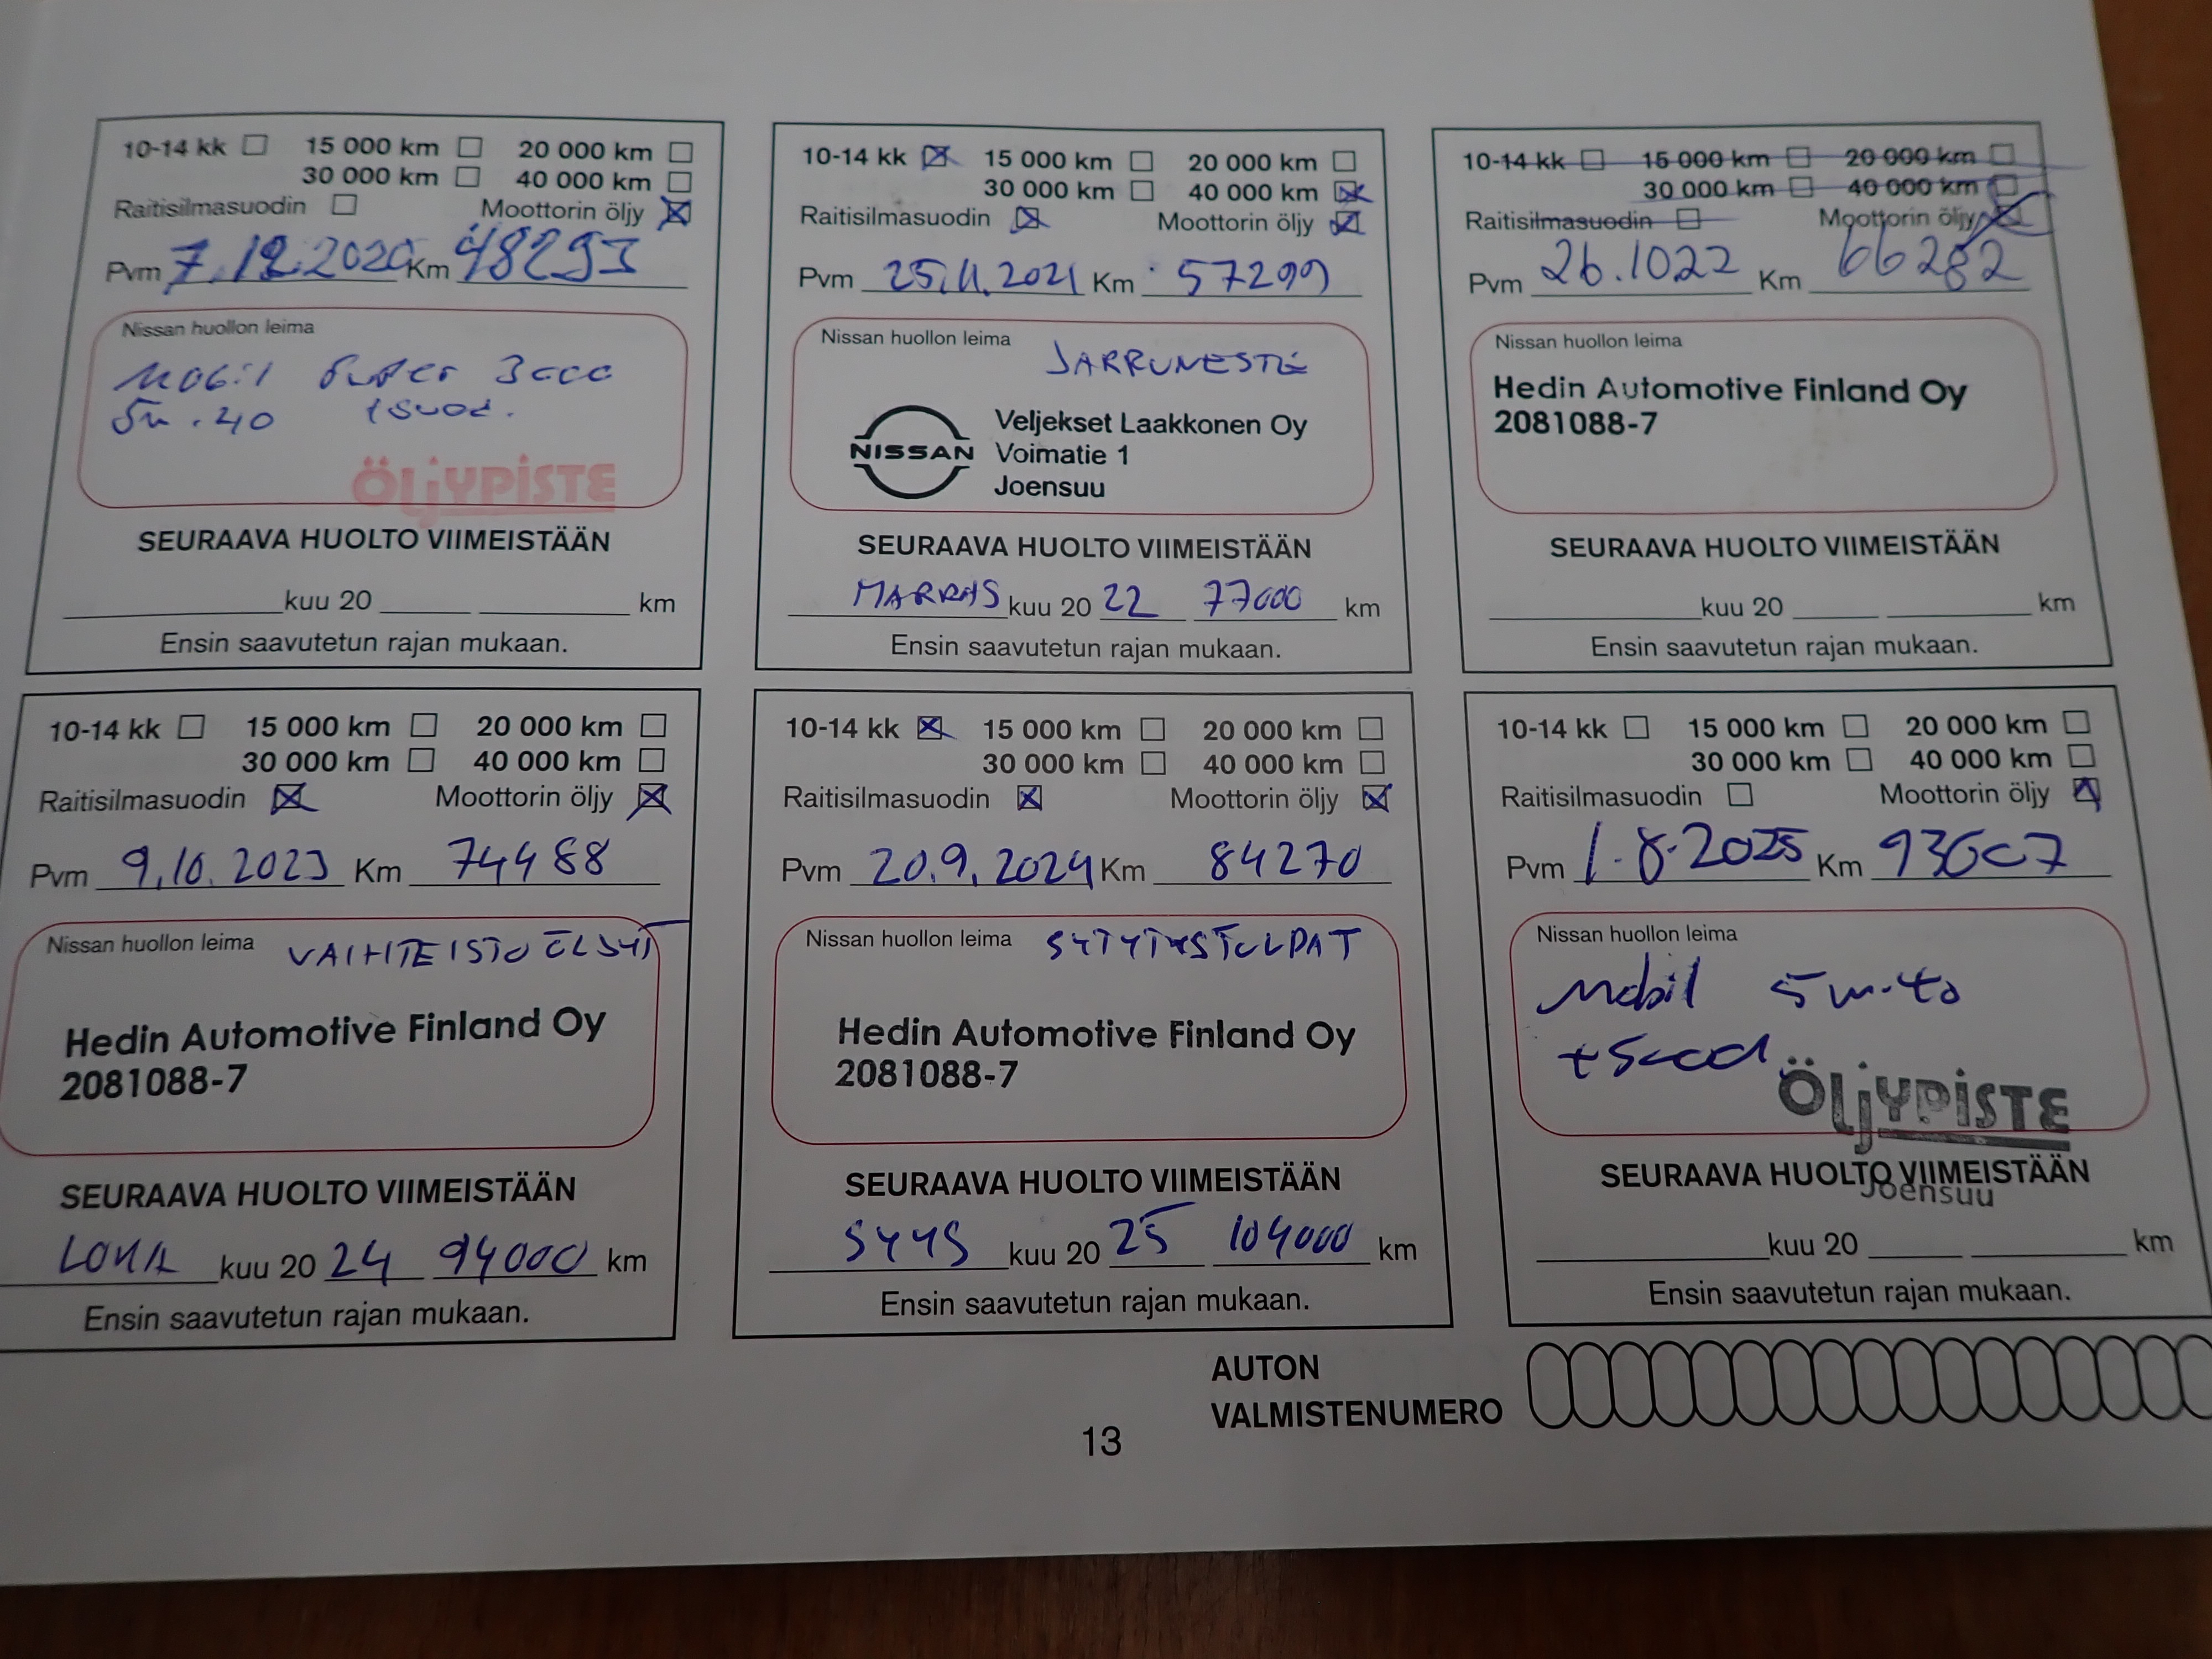 10-14 kk 15 000 km 20 000 km
30 000 km 40 000 km
Raitisilmasuodin Moottorin öljy
Pvm 7.12.2020 Km 48293
Nissan huollon leima
Mobil Super 3000
5w.40 +suod.
ÖLJYPISTE
SEURAAVA HUOLTO VIIMEISTÄÄN
kuu 20 km
Ensin saavutetun rajan mukaan.
10-14 kk 15 000 km 20 000 km
30 000 km 40 000 km
Raitisilmasuodin Moottorin öljy
Pvm 25.11.2021 Km 57299
Nissan huollon leima
JARRUNESTE
NISSAN
Veljekset Laakkonen Oy
Voimatie 1
Joensuu
SEURAAVA HUOLTO VIIMEISTÄÄN
MARRAS kuu 20 22 77000 km
Ensin saavutetun rajan mukaan.
10-14 kk 15 000 km 20 000 km
30 000 km 40 000 km
Raitisilmasuodin Moottorin öljy
Pvm 26.1022 Km 66282
Nissan huollon leima
Hedin Automotive Finland Oy
2081088-7
SEURAAVA HUOLTO VIIMEISTÄÄN
kuu 20 km
Ensin saavutetun rajan mukaan.
10-14 kk 15 000 km 20 000 km
30 000 km 40 000 km
Raitisilmasuodin Moottorin öljy
Pvm 9.10.2023 Km 74488
Nissan huollon leima VAIHTEISTO ÖLJYT
Hedin Automotive Finland Oy
2081088-7
SEURAAVA HUOLTO VIIMEISTÄÄN
LOKA kuu 20 24 94000 km
Ensin saavutetun rajan mukaan.
10-14 kk 15 000 km 20 000 km
30 000 km 40 000 km
Raitisilmasuodin Moottorin öljy
Pvm 20.9.2024 Km 84270
Nissan huollon leima SYTYTYSTULPAT
Hedin Automotive Finland Oy
2081088-7
SEURAAVA HUOLTO VIIMEISTÄÄN
SYYS kuu 20 25 104000 km
Ensin saavutetun rajan mukaan.
10-14 kk 15 000 km 20 000 km
30 000 km 40 000 km
Raitisilmasuodin Moottorin öljy
Pvm 1.8.2025 Km
Nissan huollon leima
Mobil 5w-40
+suod.
ÖLJYPISTE
Joensuu
SEURAAVA HUOLTO VIIMEISTÄÄN
kuu 20 km
Ensin saavutetun rajan mukaan.
AUTON
VALMISTENUMERO
13